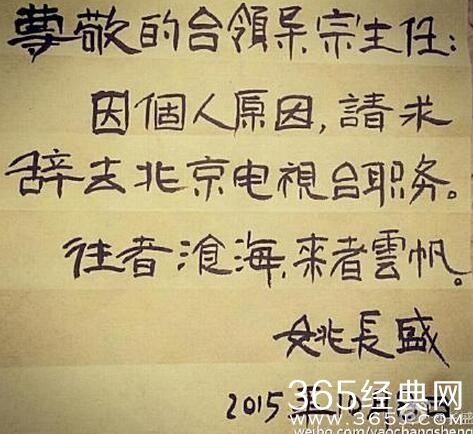 尊敬的台領导宗主任:
因個人原因,請求
辞去北京电視台职务。
往者滄海,來者雲帆。
姚長盛
2015年
365经典网
WWW.365JS.COM
weibo.com/yaochangsheng